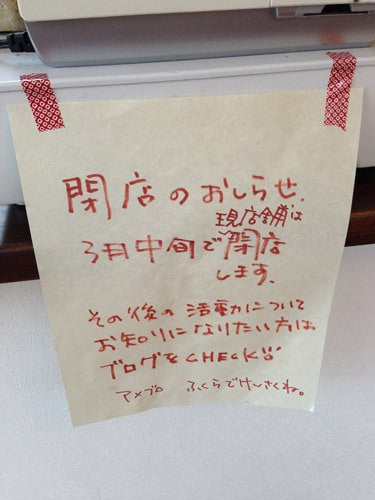 閉店のおしらせ.
現店舗は
3月中旬で閉店
します.
その後の活動について
お知りになりたい方は
ブログをCHECK!!
アメブロ ふくらでけんさくね。